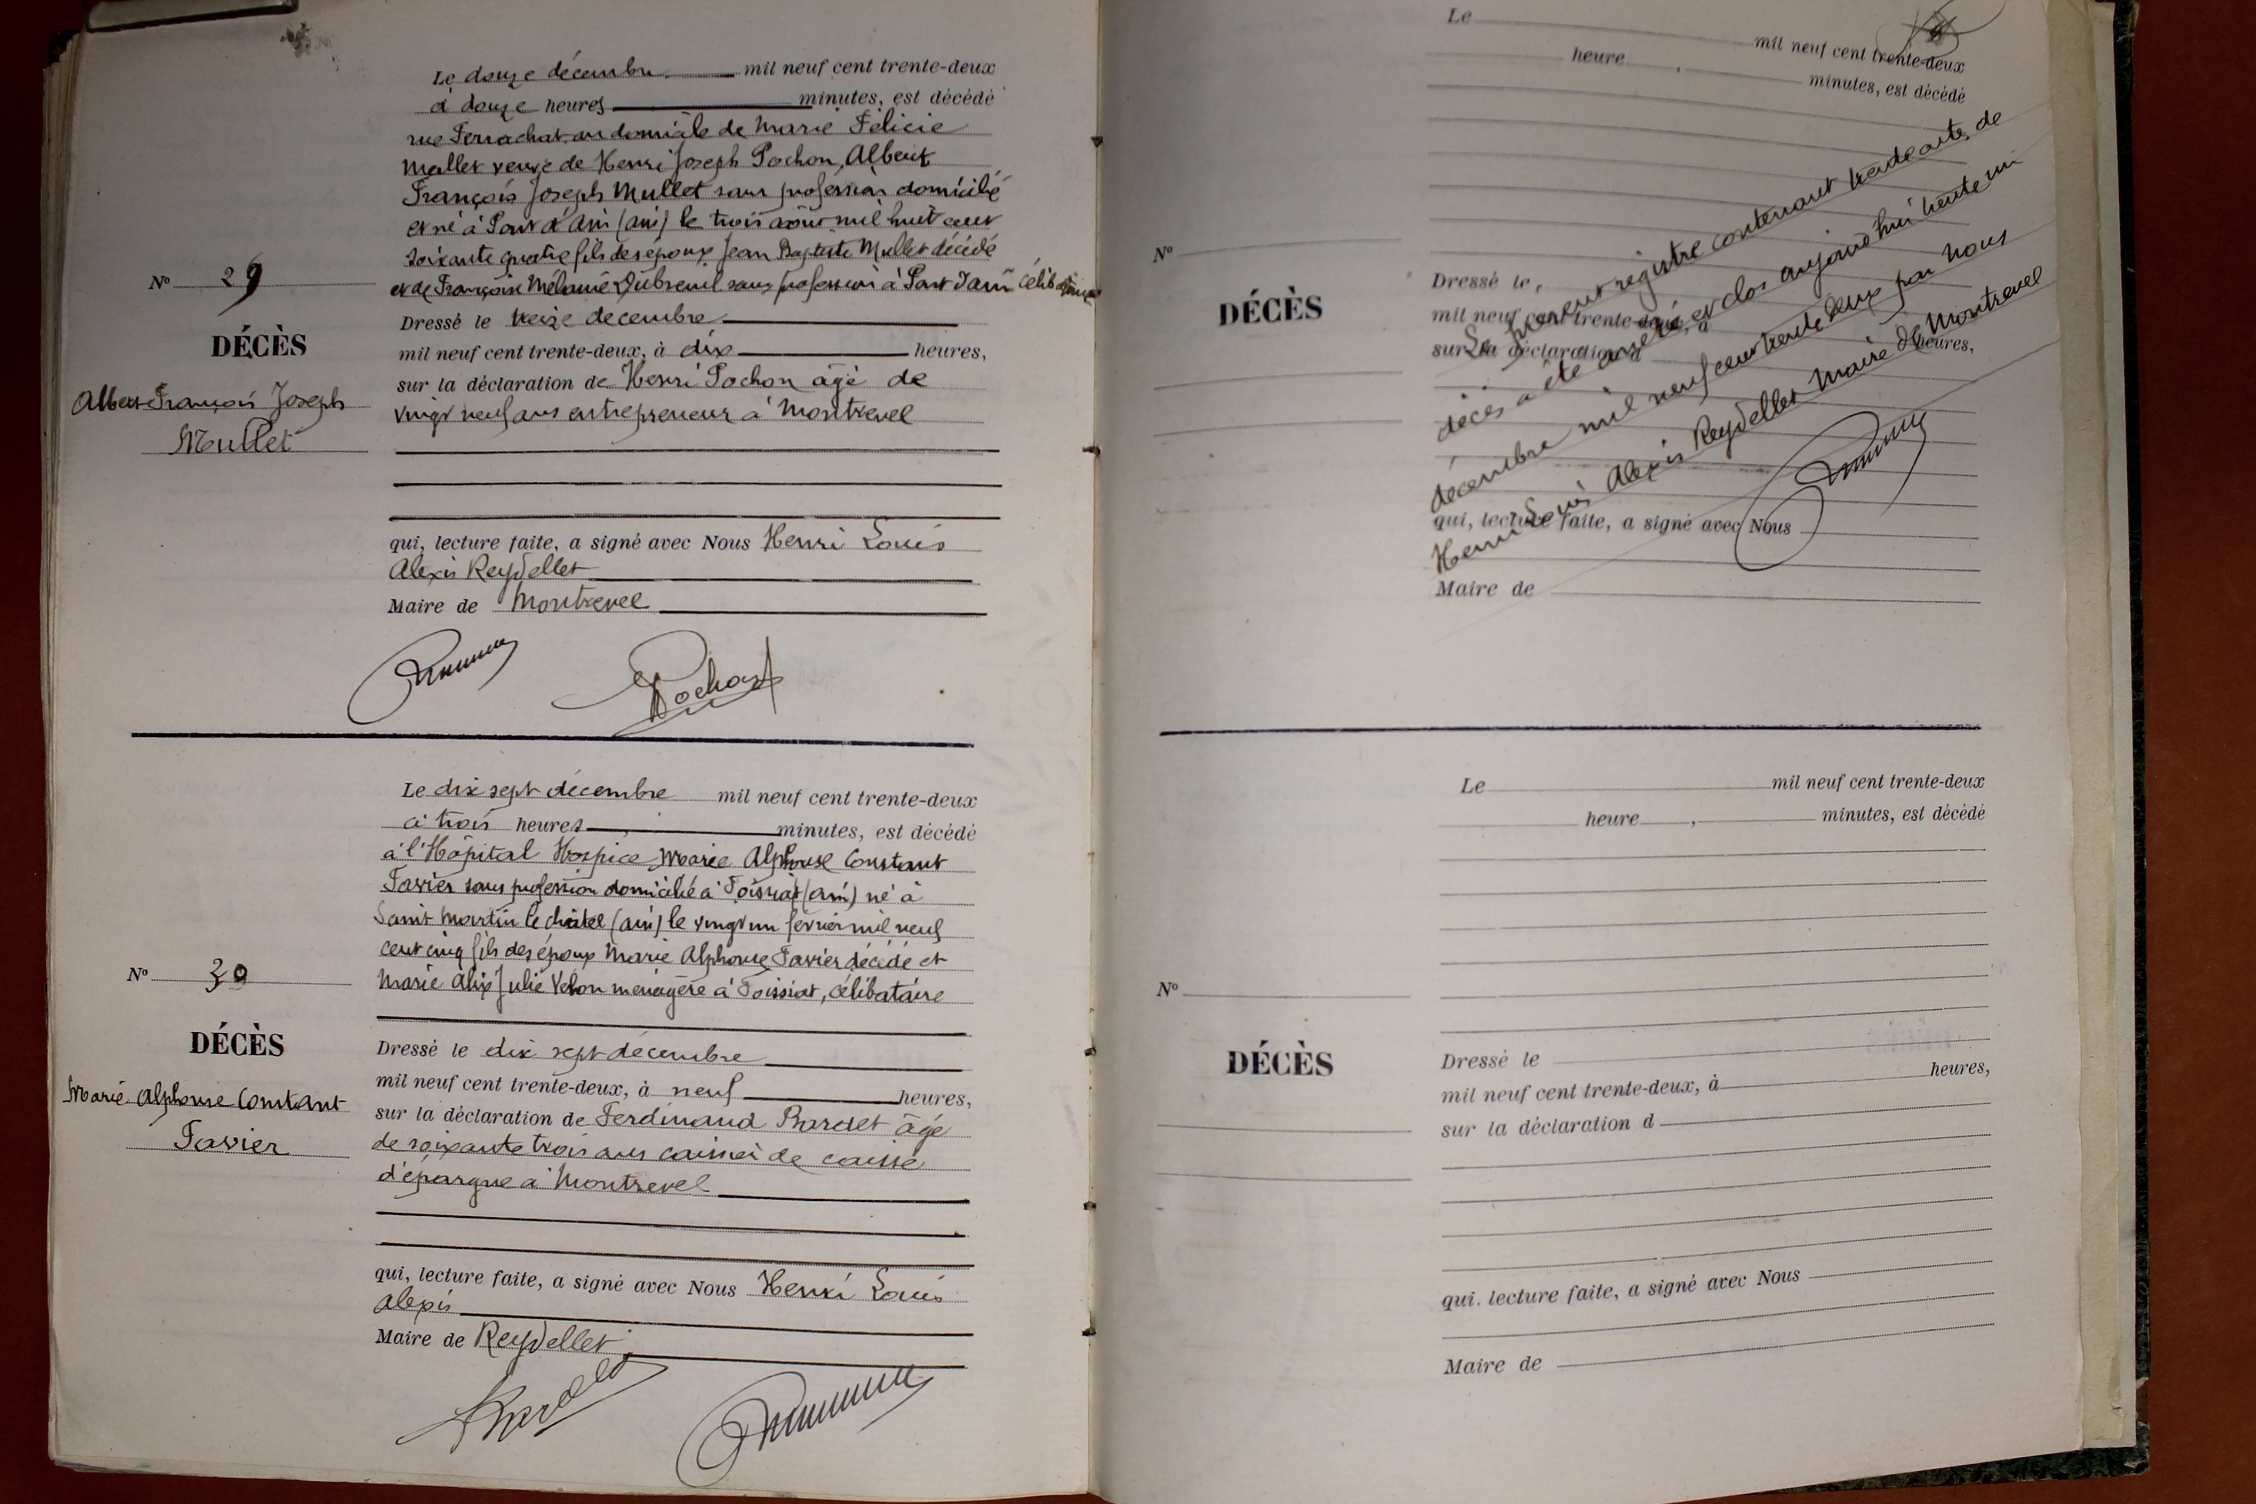 Le douze décembre mil neuf cent trente-deux
à douze heures minutes, est décédé
rue Ferrachat au domicile de Marie Félicie
Mallet veuve de Henri Joseph Pochon, Albert
François Joseph Mullet sans profession domicilié
et né à Pont d'Ain (Ain) le trois août mil huit cent
soixante quatre fils des époux Jean Baptiste Mullet décédé
et de Françoise Mélanie Dubreuil sans profession à Pont d'Ain célibataire
Nº 29
DÉCÈS
Albert François Joseph
Mullet
Dressé le treize décembre
mil neuf cent trente-deux, à dix heures,
sur la déclaration de Henri Pochon âgé de
vingt neuf ans entrepreneur à Montrevel
qui, lecture faite, a signé avec Nous Henri Louis
Alexis Reydellet
Maire de Montrevel
Pochon
Le dix sept décembre mil neuf cent trente-deux
à trois heures minutes, est décédé
à l'Hôpital Hospice Marie Alphonse Constant
Favier sans profession domicilié à Foissiat (Ain) né à
Saint Martin le châtel (Ain) le vingt un février mil neuf
cent cinq fils des époux Marie Alphonse Favier décédé et
Marie Alix Julie Velon ménagère à Foissiat, célibataire
Nº 30
DÉCÈS
Marie Alphonse Constant
Favier
Dressé le dix sept décembre
mil neuf cent trente-deux, à neuf heures,
sur la déclaration de Ferdinand Bardet âgé
de soixante trois ans caissier de caisse
d'épargne à Montrevel
qui, lecture faite, a signé avec Nous Henri Louis
Alexis
Maire de Reydellet
Le mil neuf cent trente-deux
heure, minutes, est décédé
Nº
DÉCÈS
Dressé le
mil neuf cent trente-deux, à heures,
sur la déclaration d
qui, lecture faite, a signé avec Nous
Maire de
Le présent registre contenant trente actes de
décès a été arrêté et clos aujourd'hui trente un
décembre mil neuf cent trente deux par nous
Henri Louis Alexis Reydellet Maire de Montrevel
Le mil neuf cent trente-deux
heure, minutes, est décédé
Nº
DÉCÈS
Dressé le
mil neuf cent trente-deux, à heures,
sur la déclaration d
qui, lecture faite, a signé avec Nous
Maire de